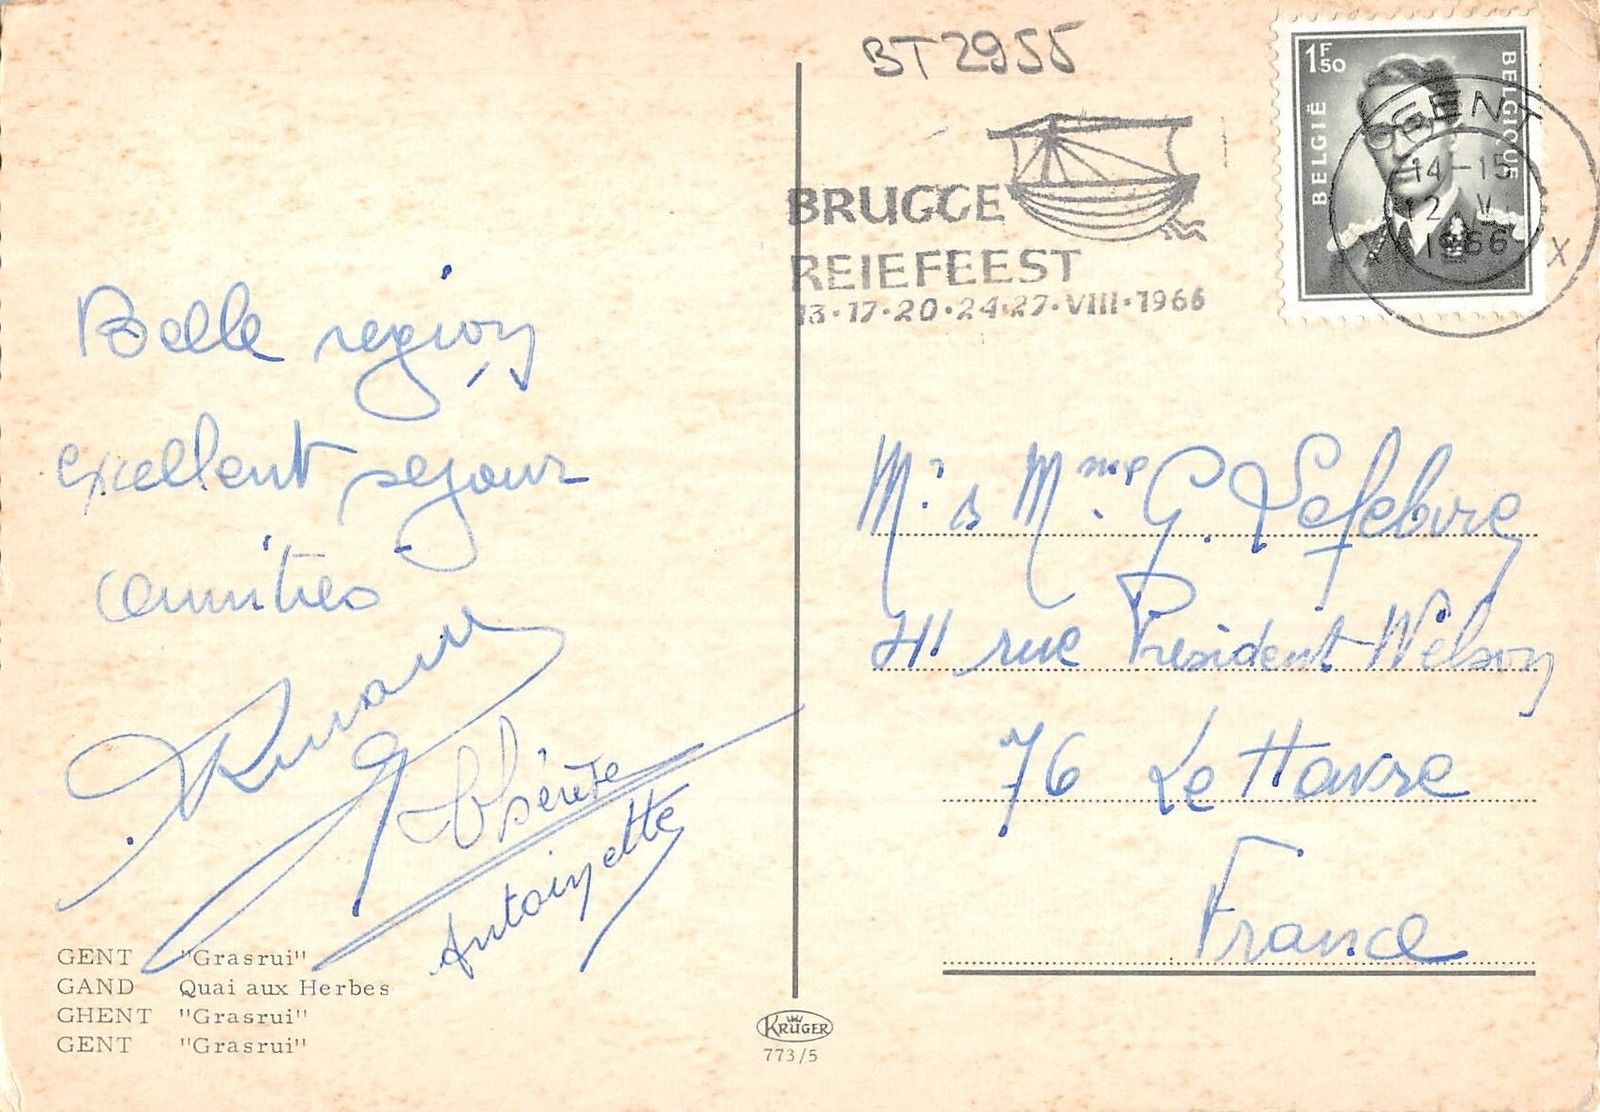 BT2955
BRUGGE
REIEFEEST
13·17·20·24·27·VIII·1966
1F50
BELGIË
BELGIQUE
GENT
14-15
12 V
1966
Belle région,
excellent séjour
amitiés
Thérèse
Antoinette
Mr & Mme G. Lefebvre
41 rue Président-Wilson
76 Le Havre
France
GENT "Grasrui"
GAND Quai aux Herbes
GHENT "Grasrui"
GENT "Grasrui"
KRÜGER
773/5